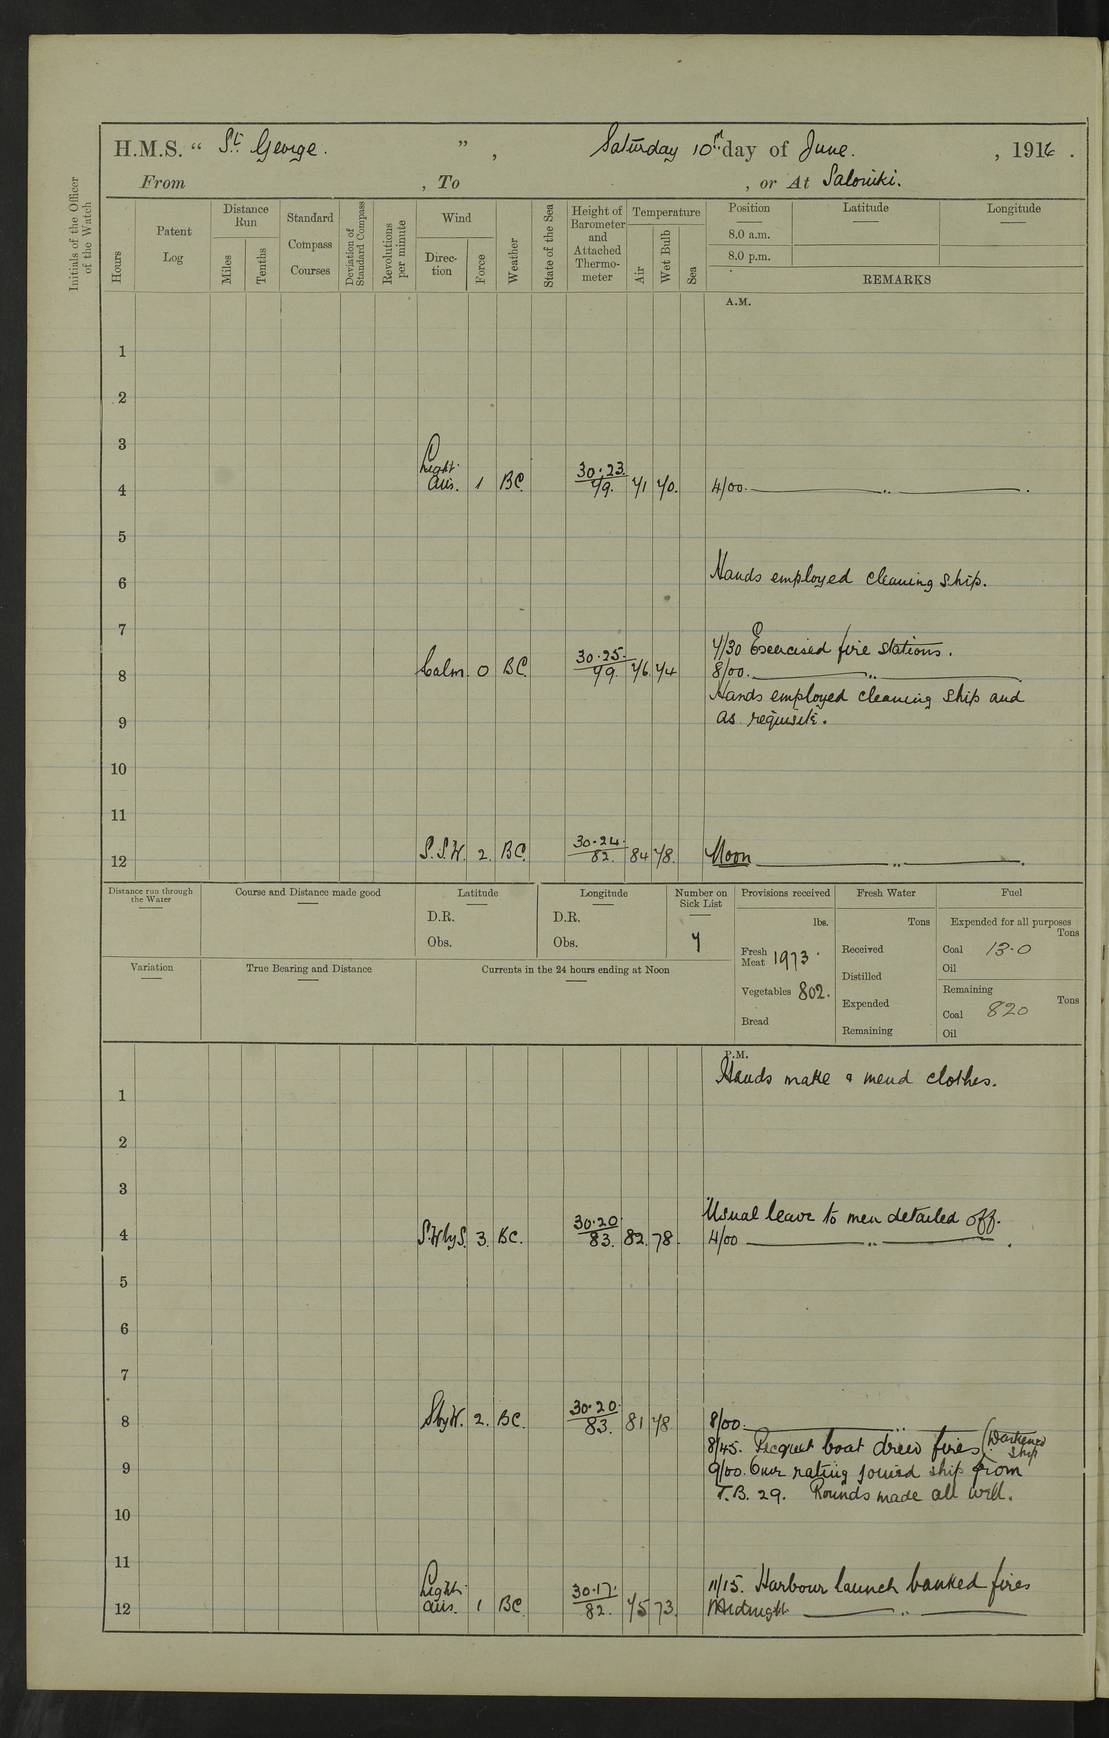 H.M.S. “ St George. ” , Saturday 10th day of June. , 1916 .
From , To , or At Salonika.
Initials of the Officer of the Watch
Hours
Patent Log
Distance Run
Miles
Tenths
Standard Compass Courses
Deviation of Standard Compass
Revolutions per minute
Wind
Direction
Force
Weather
State of the Sea
Height of Barometer and Attached Thermometer
Temperature
Air
Wet Bulb
Sea
Position Latitude Longitude
8.0 a.m.
8.0 p.m.
REMARKS
A.M.
1
2
3
4 Light airs. 1 BC. 30.23. 79. 71 70. 4/00. ——— „ ——— .
5
6 Hands employed cleaning ship.
7
7/30 Exercised fire stations.
8 Calm. 0 BC. 30.25. 79. 76 74 8/00. ——— „ ———
Hands employed cleaning ship and
9 as requisite.
10
11
12 S.S.W. 2. BC. 30.24. 82. 84 78. Noon ——— „ ——— .
Distance run through the Water
Course and Distance made good
Latitude
D.R.
Obs.
Longitude
D.R.
Obs.
Number on Sick List
7
Provisions received
lbs.
Fresh Meat 1973.
Vegetables 802.
Bread
Fresh Water
Tons
Received
Distilled
Expended
Remaining
Fuel
Expended for all purposes
Tons
Coal 13.0
Oil
Remaining
Tons
Coal 820
Oil
Variation
True Bearing and Distance
Currents in the 24 hours ending at Noon
P.M.
Hands make & mend clothes.
1
2
3
Usual leave to men detailed off.
4 S.W by S. 3. BC. 30.20 83. 82. 78. 4/00 ——— „ ——— .
5
6
7
8 S by W. 2. BC. 30.20. 83. 81 78 8/00. ——— „ ———
8/45. Picquet boat drew fires. (Darkened ship
9 9/00. One rating joined ship from
T.B. 29. Rounds made all well.
10
11
11/15. Harbour launch banked fires
12 Light airs. 1 BC 30.17. 82. 75 73. Midnight ——— „ ———